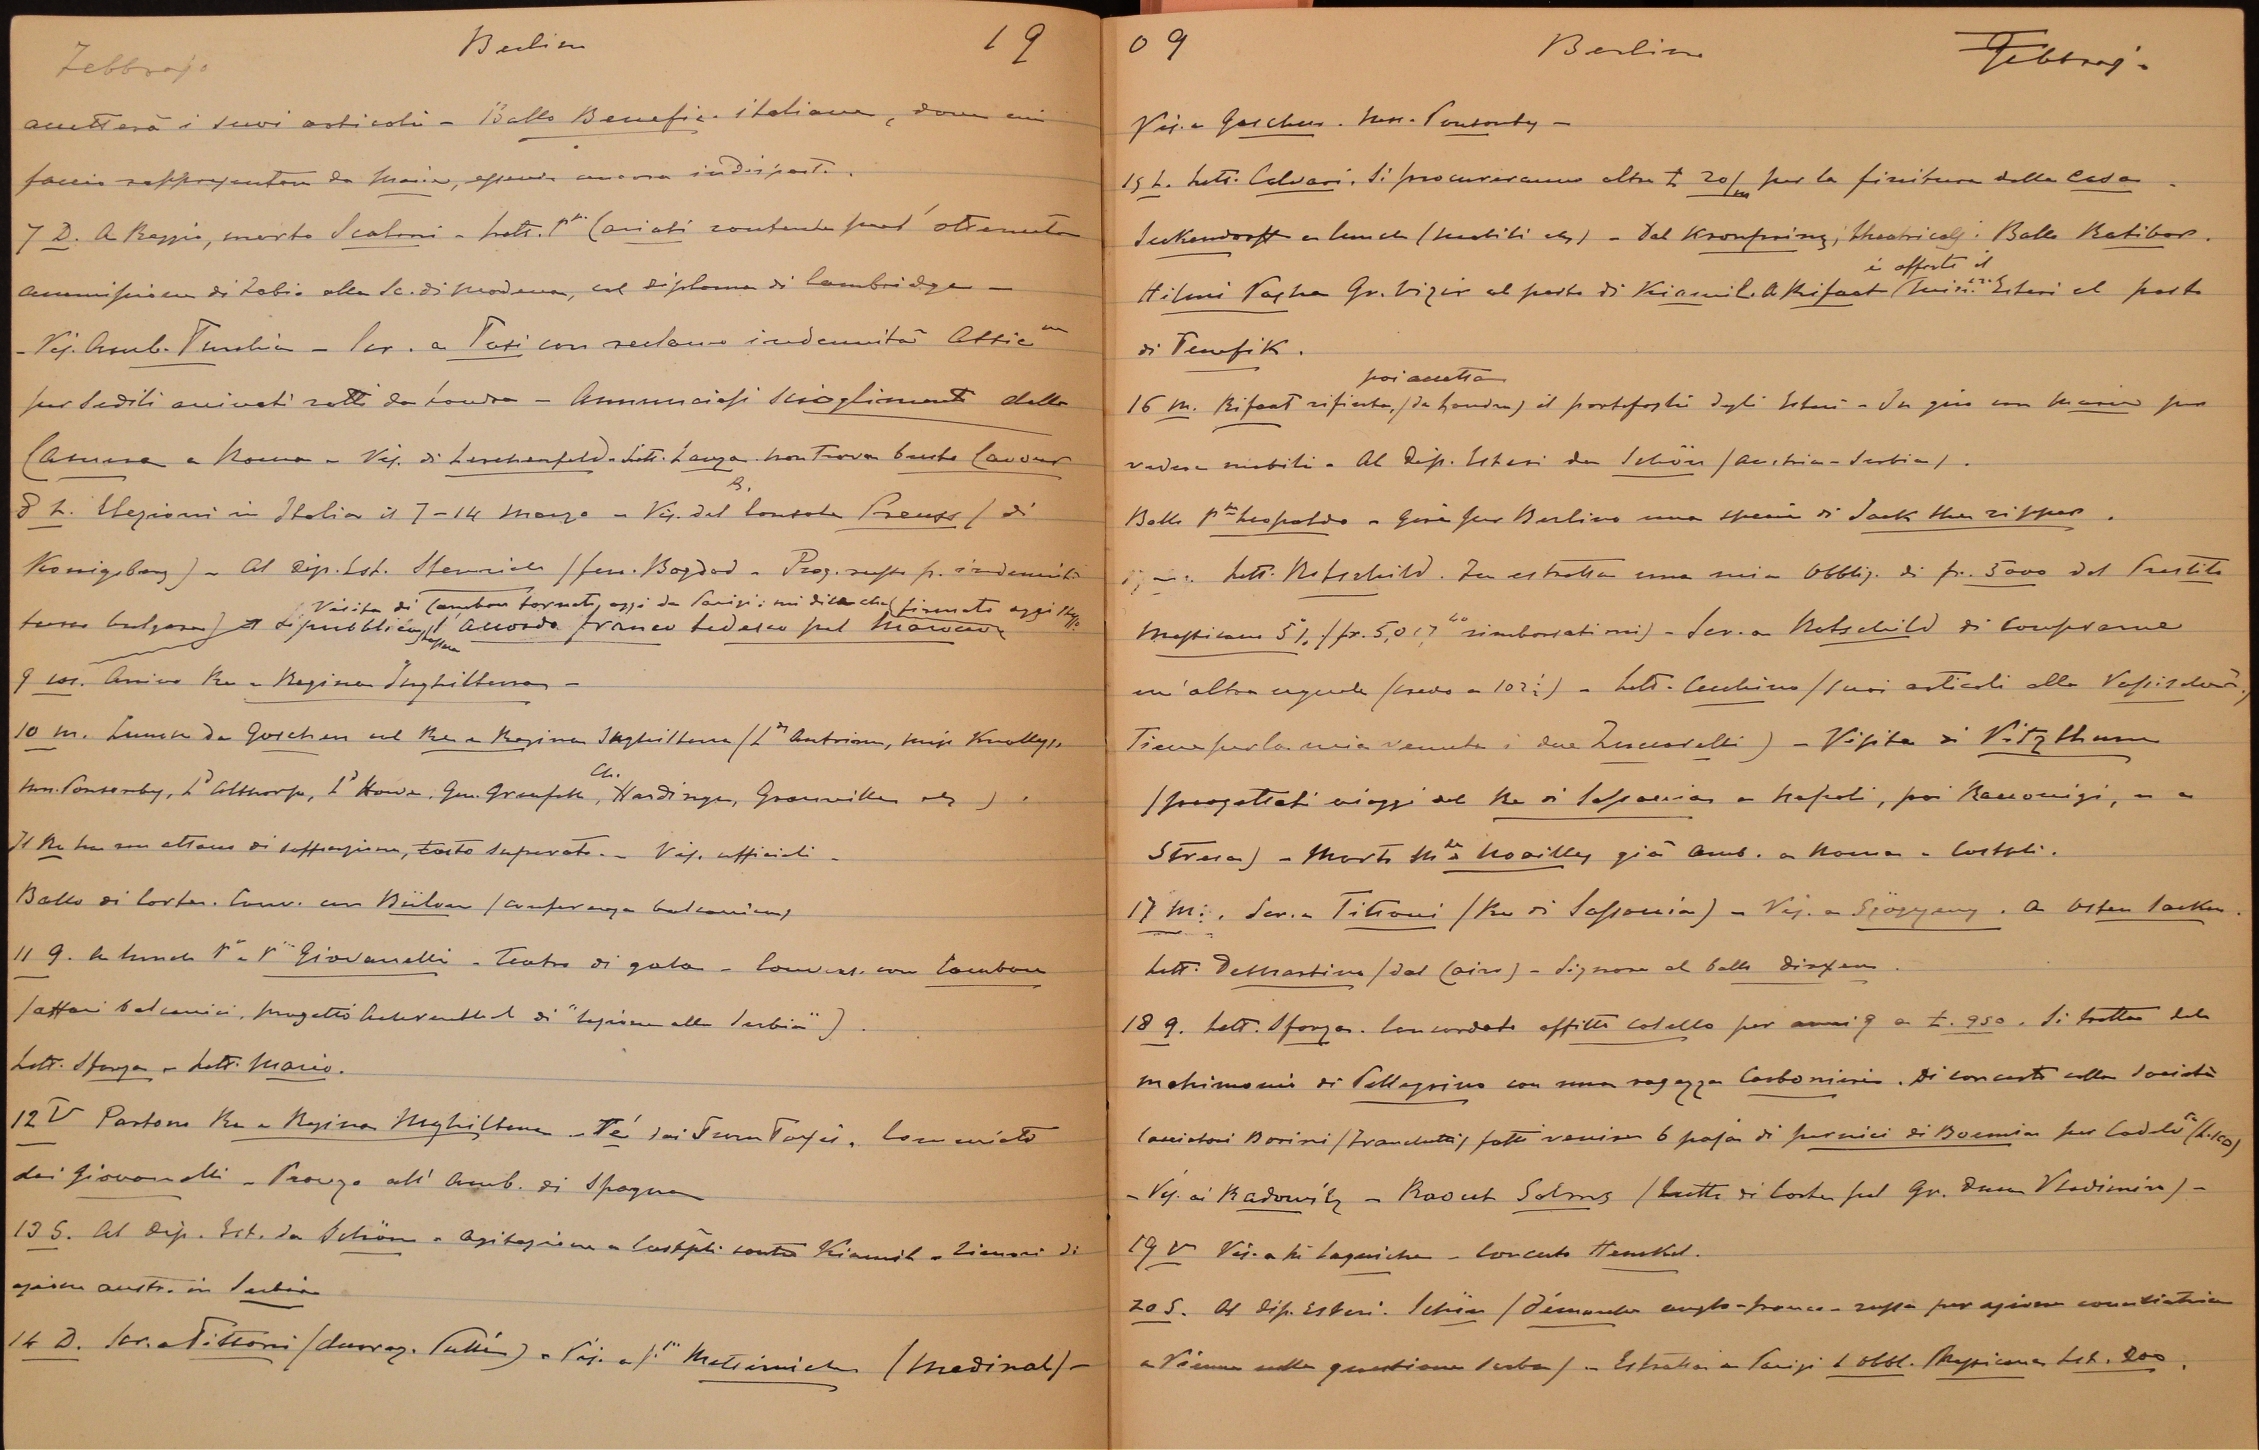 Febbrajo Berlin 19
accetterà i suoi articoli - Ballo Benefic. italiana, dove mi
faccio rappresentare da Maria, essendo ancora indispost.
7 D. A Reggio, morto Scaloni - Lett. Pssa Cariati contenta per l'ottenuta
ammissione di Fabio alla Sc. di Modena, col diploma di Cambridge -
- Vis. Amb. Turchia - Scr. a Tosi con reclamo indennità
per sedili arrivati rotti da Londra - Annunciasi scioglimento della
Camera a Roma - Vis. di Lerchenfeld. Lett. Lanza. Non trova busto Cavour
8 L. Elezioni in Italia il 7-14 Marzo - Vis. del Console B. Preuss (di
Königsberg) - Al Dip. Est. Stemrich (ferr. Bagdad - Prog. russo p. indennità
Visita di Cambon tornato oggi da Parigi: mi dice che firmato oggi stesso
turco bulgara) Si pubblica l'accordo franco tedesco pel Marocco
9 m. Arrivo Re e Regina Inghilterra -
10 m. Lunch da Goschen col Re e Regina Inghilterra (Ly Antrim, Miss Knollys,
Mrs. Ponsonby, Ld Althorp, Ld Howe, Gen. Grenfell, Ch. Hardinge, Granville etc).
Il Re ha un attacco di soffocazione, tosto superato. - Vis. ufficiali -
Ballo di Corte. Conv. con Bülow (conferenza balcanica)
11 G. A lunch Pe e Pssa Giovanelli - Teatro di gala - Convers. con Cambon
(affari balcanici, progetto Aehrenthal di "lezione alla Serbia").
Lett. Sforza - Lett. Mario.
12 V Partono Re e Regina Inghilterra - Té dai Turn Taxis. Commiato
dai Giovanelli - Pranzo all'Amb. di Spagna
13 S. Al Dip. Est. da Schön - Agitazione a Costpli contro Kiamil - Timori di
azione austr. in Serbia
14 D. Scr. a Tittoni - Vis. a Pssa Metternich -
09 Berlin Febbraj.
Vis. a Goschen. Mrs. Ponsonby -
15 L. Lett. Calvari. Si procureranno altre £ 20/m per la finitura della casa.
Seckendorff a lunch (mobili etc) - Dal Kronprinz, theatricals. Ballo Ratibor.
Hilmi Pascha Gr. Vizir al posto di Kiamil. A Rifaat è offerto il Minist. Esteri al posto
di Tewfik.
16 M. Rifaat rifiuta, poi accetta (da Londra) il portafogli degli Esteri - In giro con Maria per
vedere mobili - Al Dip. Esteri da Schön (Austria-Serbia).
Ballo Pe Leopoldo - Gira per Berlino una specie di Jack the ripper.
Lett. Rotschild. Fu estratta una mia Obblig. di fr. 5000 del Prestito
Messicano 5% (fr. 5,017 rimborsatimi) - Scr. a Rotschild di comprarne
un'altra uguale (credo a 102½) - Lett. Cecchino (suoi articoli alla
Tiene per la mia venuta i due Zuccarelli) - Visita di Vitzthum
(progettati viaggi del Re di Sassonia a Napoli, poi Racconigi, e a
Stresa) - Morto Mse Noailles già Amb. a Roma e Costpli.
17 M. Scr. a Tittoni (Re di Sassonia) - Vis. a Szögyeny. A Osten Sacken.
Lett. DeMartino (dal Cairo) - Signora al ballo Dirksen.
18 G. Lett. Sforza. Concordato affitto Codello per anni 9 a £. 950. Si tratta del
matrimonio di Pellegrino con una ragazza Carboniera. Di concerto colla Società
Cacciatori fatti venire 6 paja di pernici di Boemia per
- Vis. ai Radowitz - Raout Solms (Lutto di Corte pel Gr. Duca Vladimiro) -
19 V Vis. a Laguiche - Concerto Henckel.
20 S. Al Dip. Esteri. Schön (démarche anglo-franco-russa per azione conciliatrice
a Vienna nella questione serba) - Estratta a Parigi 1 obbl. Messicana Lst. 200.